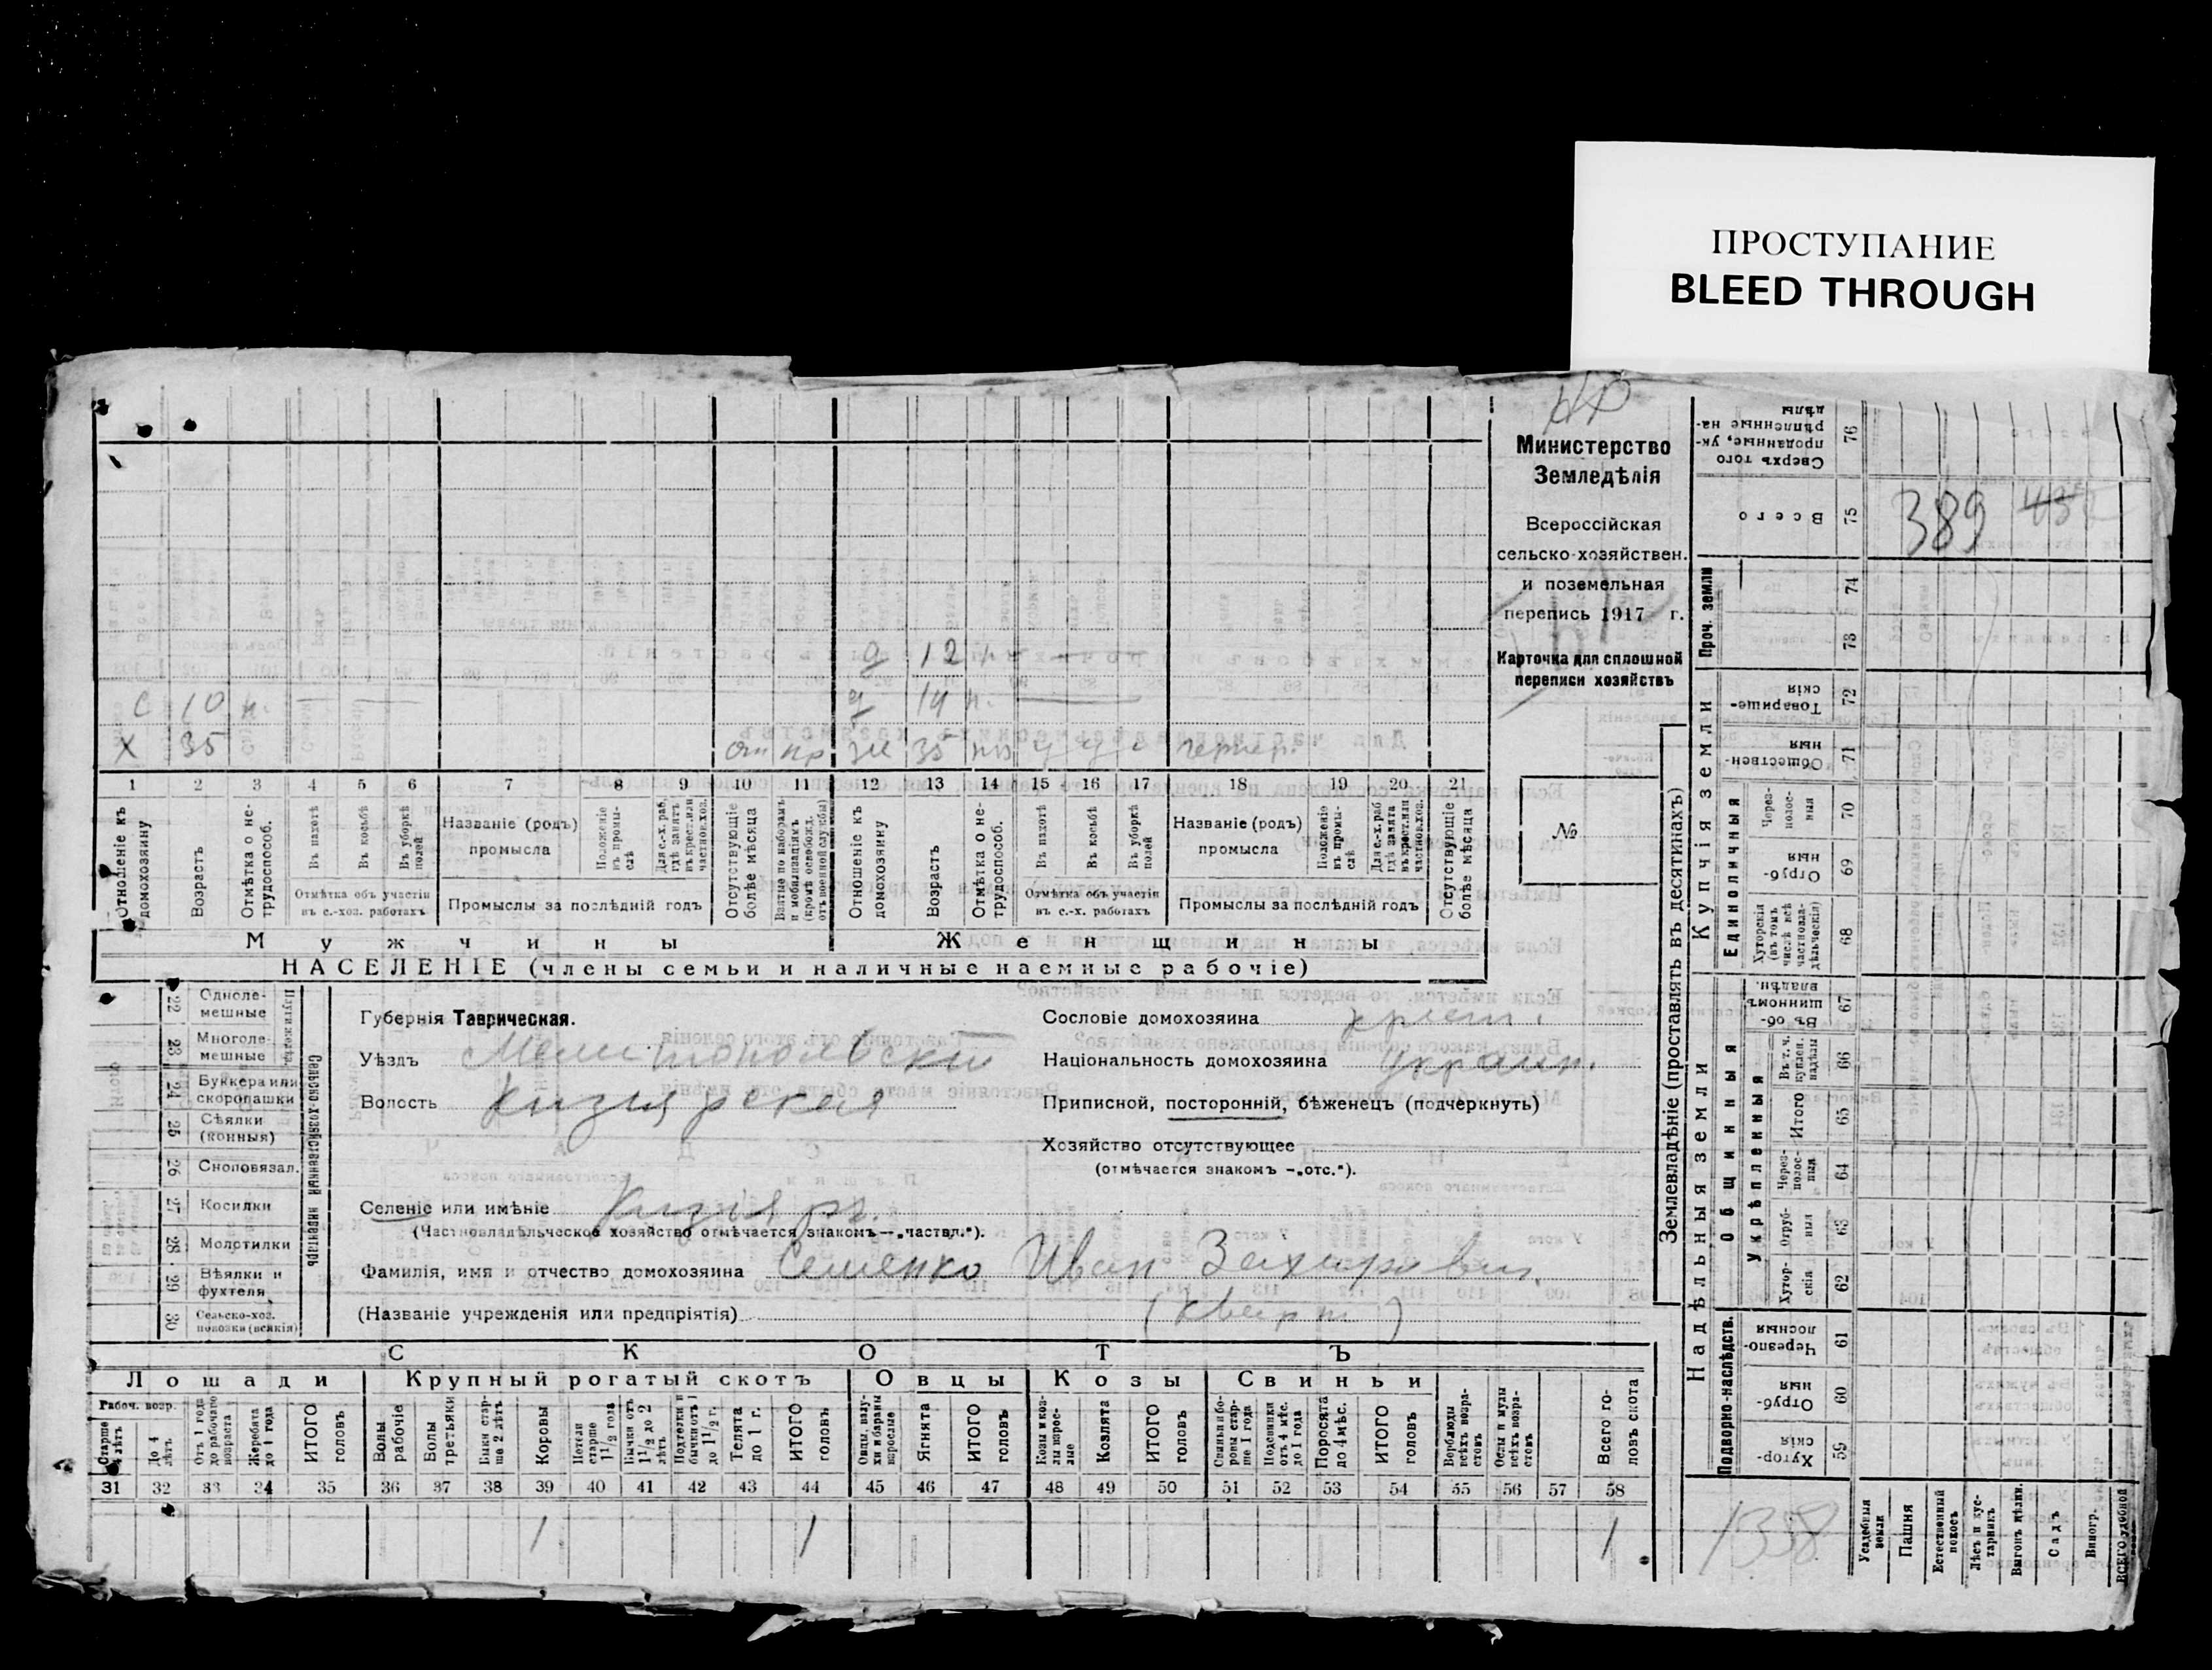 ПРОСТУПАНИЕ
BLEED THROUGH
Министерство
Земледѣлія
Всероссійская
сельско-хозяйствен.
и поземельная
перепись 1917 г.
Карточка для сплошной
переписи хозяйствъ
№
д 12 н
С 10 н. — — д 14 н. —
Х 35 от пр ж 35
1 2 3 4 5 6 7 8 9 10 11 12 13 14 15 16 17 18 19 20 21
Отношеніе къ домохозяину
Возрастъ
Отмѣтка о не-трудоспособ.
Въ пахотѣ
Въ косьбѣ
Въ уборкѣ полей
Отмѣтка объ участіи въ с.-хоз. работахъ
Названіе (родъ) промысла
Положеніе въ промы-слѣ
Для с.-х. раб. гдѣ занятъ въ крест. или частнов. хоз.
Промыслы за послѣдній годъ
Отсутствующіе болѣе мѣсяца
Взятые по наборамъ и мобилизаціямъ (кромѣ освобожд. отъ военной службы)
Отношеніе къ домохозяину
Возрастъ
Отмѣтка о не-трудоспособ.
Въ пахотѣ
Въ косьбѣ
Въ уборкѣ полей
Отмѣтка объ участіи въ с.-х. работахъ
Названіе (родъ) промысла
Положеніе въ промы-слѣ
Для с.-х. раб гдѣ занята въ крест. или частнов. хоз.
Промыслы за послѣдній годъ
Отсутствующіе болѣе мѣсяца
Мужчины Женщины
НАСЕЛЕНІЕ (члены семьи и наличные наемные рабочіе)
Сельско-хозяйственный инвентарь
22 Одноле-мешные
23 Многоле-мешные
24 Буккера или скоропашки
25 Сѣялки (конныя)
26 Сноповязал.
27 Косилки
28 Молотилки
29 Вѣялки и фухтеля
30 Сельско-хоз. повозки (всякія)
Губернія Таврическая.
Уѣздъ Мелитопольскій
Волость Кизіярская
Селеніе или имѣніе Кизіяръ.
(Частновладѣльческое хозяйство отмѣчается знакомъ—„частвл.").
Фамилія, имя и отчество домохозяина Семенко Иван Захарович.
(Названіе учрежденія или предпріятія) (кварт)
Сословіе домохозяина крест.
Національность домохозяина украин.
Приписной, посторонній, бѣженецъ (подчеркнуть)
Хозяйство отсутствующее
(отмѣчается знакомъ —„отс.").
СКОТЪ
Лошади Крупный рогатый скотъ Овцы Козы Свиньи
Рабоч. возр.
Старше 4 лѣтъ
До 4 лѣтъ
Отъ 1 года до рабочаго возраста
Жеребята до 1 года
ИТОГО головъ
Волы рабочіе
Волы третьяки
Быки стар-ше 2 лѣтъ
Коровы
Нетели старше 1½ года
Бычки отъ 1½ до 2 лѣтъ
Подтелки и бычки отъ 1 до 1½ г.
Телята до 1 г.
ИТОГО головъ
Овцы, валу-хи и бараны взрослые
Ягнята
ИТОГО головъ
Козы и коз-лы взрос-лые
Козлята
ИТОГО головъ
Свиньи и бо-ровы стар-ше 1 года
Подсвинки отъ 4 мѣс. до 1 года
Поросята до 4 мѣс.
ИТОГО головъ
Верблюды всѣхъ возра-стовъ
Ослы и мулы всѣхъ возра-стовъ
Всего го-ловъ скота
31 32 33 34 35 36 37 38 39 40 41 42 43 44 45 46 47 48 49 50 51 52 53 54 55 56 57 58
1 1 1
Землевладѣніе (проставлять въ десятинахъ)
Проч. земли
Купчія земли
Единоличныя
Надѣльныя земли
Общинныя
Укрѣпленныя
Подворно-наслѣдств.
Сверхъ того проданные, ук-рѣпленные на-дѣлы 76
Всего 75 389
74
73
Товарище-скія 72
Обществен-ныя 71
Через-полос-ныя 70
Отруб-ныя 69
Хуторскія (въ томъ числѣ всѣ частновла-дѣльческія) 68
Въ об-щинномъ владѣн. 67
Въ т. ч. куплен. надѣлы 66
Итого 65
Через-полос-ныя 64
Отруб-ныя 63
Хутор-скія 62
Черезпо-лосныя 61
Отруб-ныя 60
Хутор-скія 59
1338
Усадебныя земли
Пашня
Естественный покосъ
Лѣсъ и кус-тарникъ
Выгонъ
Садъ
Виногр.
ВСЕГО удобной